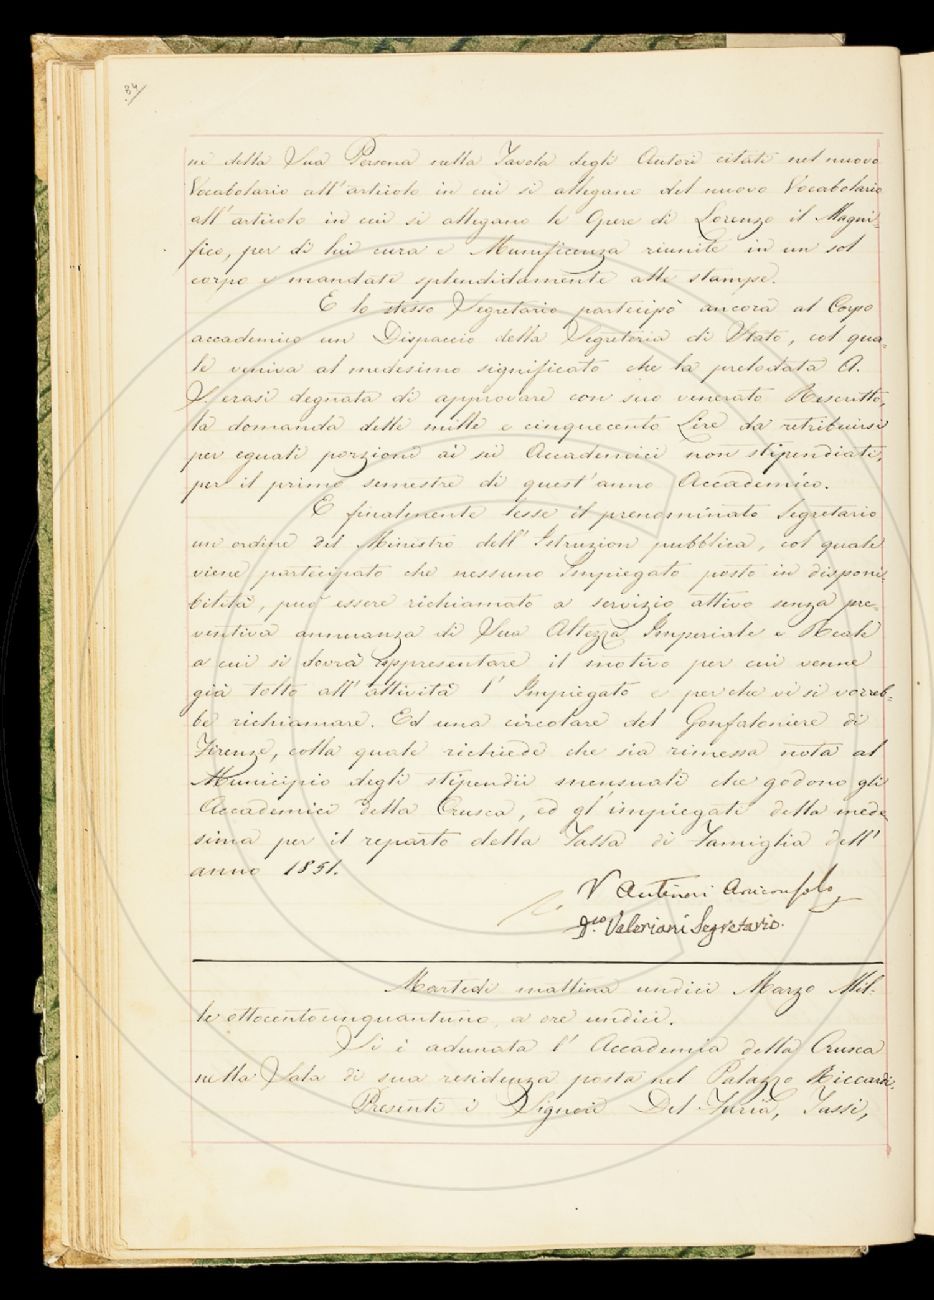 84
ne della Sua Persona nella Tavola degli Autori citati nel nuovo
Vocabolario all'articolo in cui si allegano del nuovo Vocabolario
all'articolo in cui si allegano le Opere di Lorenzo il Magni-
fico, per di lui cura e Munificenza riunite in un sol
corpo e mandate splendidamente alle stampe.
E lo stesso Segretario partecipò ancora al Corpo
accademico un Dispaccio della Segreteria di Stato, col qua-
le veniva al medesimo significato che la prelodata A.
S. erasi degnata di approvare con suo venerato Rescritto,
la domanda delle mille e cinquecento Lire da retribuirsi
per eguali porzioni ai sei Accademici non stipendiati,
per il primo semestre di quest'anno Accademico.
E finalmente lesse il prenominato Segretario
un ordine del Ministro dell'Istruzion pubblica, col quale
viene participato che nessuno Impiegato posto in disponi-
bilità, può essere richiamato a servizio attivo senza pre-
ventiva annuanza di Sua Altezza Imperiale e Reale
a cui si dovrà rappresentare il motivo per cui venne
già tolto all'attività l'Impiegato e perchè vi si vorreb-
be richiamare. Ed una circolare del Gonfaloniere di
Firenze, colla quale richiede che sia rimessa nota al
Municipio degli stipendii mensuali che godono gli
Accademici della Crusca, ed gl'impiegati della mede
sima per il reparto della Tassa di Famiglia dell'
anno 1851.
V Antinori Arciconsolo
Dco. Valeriani Segretario.
Martedì mattina undici Marzo Mil-
le ottocentocinquantuno, a ore undici.
Si è adunata l'Accademia della Crusca
nella Sala di sua residenza posta nel Palazzo Riccardi.
Presenti i Signori Del-Furia, Tassi,